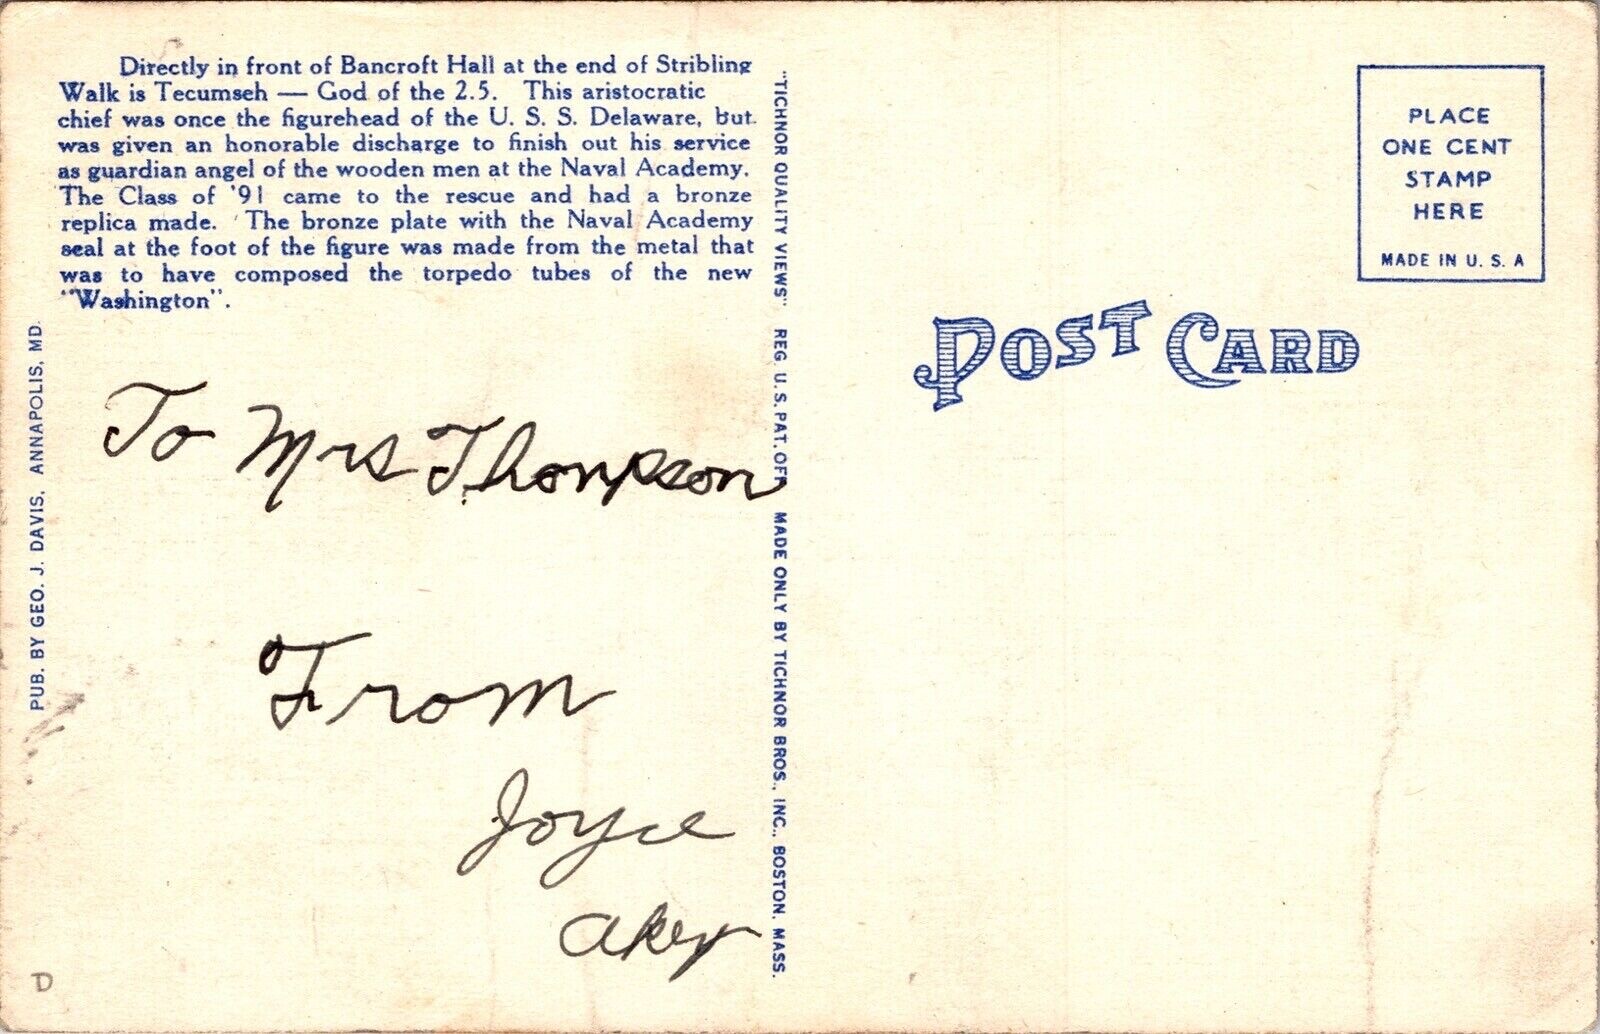 Directly in front of Bancroft Hall at the end of Stribling
Walk is Tecumseh — God of the 2.5. This aristocratic
chief was once the figurehead of the U. S. S. Delaware, but
was given an honorable discharge to finish out his service
as guardian angel of the wooden men at the Naval Academy.
The Class of '91 came to the rescue and had a bronze
replica made. The bronze plate with the Naval Academy
seal at the foot of the figure was made from the metal that
was to have composed the torpedo tubes of the new
"Washington".
PUB. BY GEO. J. DAVIS, ANNAPOLIS, MD.
To Mrs Thompson
From
Joyce
Akey
D
"TICHNOR QUALITY VIEWS" REG. U. S. PAT. OFF. MADE ONLY BY TICHNOR BROS., INC., BOSTON, MASS.
POST CARD
PLACE
ONE CENT
STAMP
HERE
MADE IN U. S. A